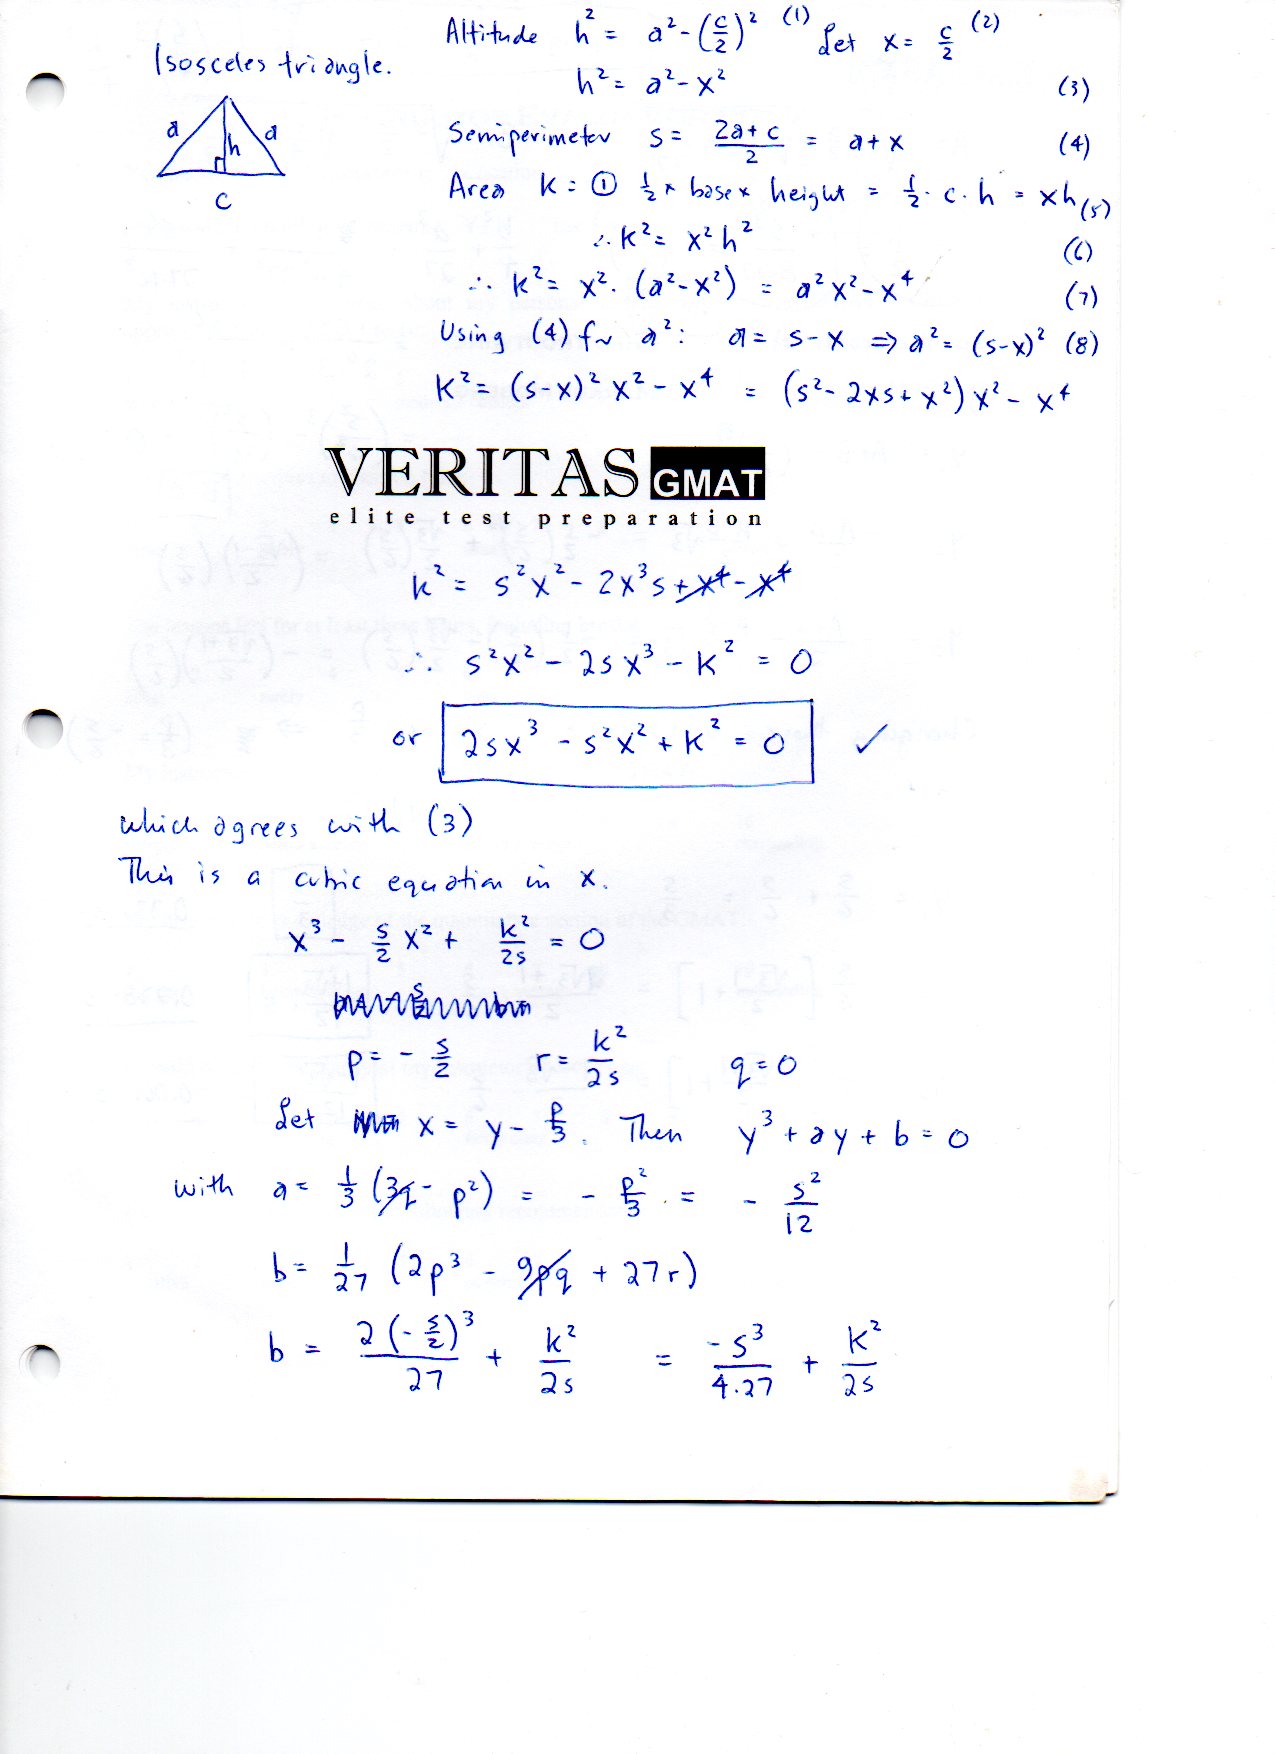 Isosceles triangle.
a a
h
c
Altitude h² = a² - (c/2)² (1) Let x = c/2 (2)
h² = a² - x² (3)
Semiperimeter s = (2a + c)/2 = a + x (4)
Area k = ① ½ × base × height = ½ · c · h = xh (5)
∴ k² = x² h² (6)
∴ k² = x² · (a² - x²) = a² x² - x⁴ (7)
Using (4) for a²: a = s - x ⇒ a² = (s-x)² (8)
k² = (s-x)² x² - x⁴ = (s² - 2xs + x²) x² - x⁴
VERITAS GMAT
elite test preparation
k² = s² x² - 2x³ s + x⁴ - x⁴
∴ s² x² - 2s x³ - k² = 0
or 2sx³ - s² x² + k² = 0 ✓
which agrees with (3)
This is a cubic equation in x.
x³ - s/2 x² + k²/2s = 0
p = - s/2 r = k²/2s q = 0
Let x = y - p/3. Then y³ + ay + b = 0
with a = 1/3 (3q - p²) = - p²/3 = - s²/12
b = 1/27 (2p³ - 9pq + 27r)
b = 2(-s/2)³/27 + k²/2s = -s³/4.27 + k²/2s